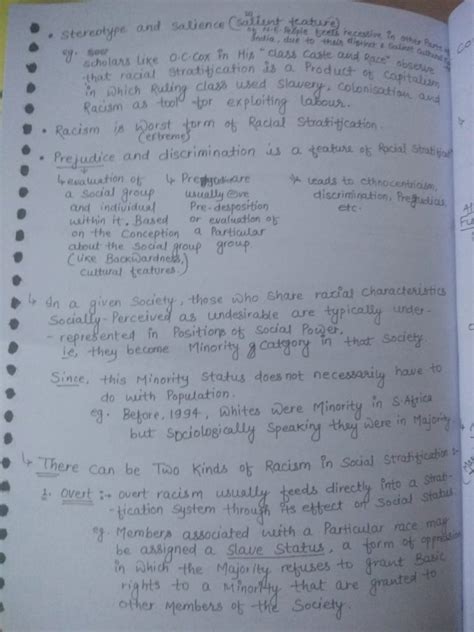 • Stereotype and salience (salient feature)
eg. N.E. People feels recessive in other Parts of
India, due to their distinct & salient cultural
eg. scholars like O.C.Cox in His "class Caste and Race" observe
that racial stratification is a Product of Capitalism
in which Ruling class used Slavery, colonisation and
Racism as tool for exploiting labour.
• Racism is Worst form of Racial Stratification.
(extreme)
• Prejudice and discrimination is a feature of Racial Stratificatn
↳ evaluation of
a social group
and individual
within it. Based
on the Conception
about the Social group
(like Backwardness,
cultural features.)
↳ Prejudice are
usually ⊖ve
Pre-desposition
or evaluation of
a Particular
group
↳ leads to ethnocentricism,
discrimination, Prejudices,
etc.
↳ In a given Society, those who share racial characteristics
Socially-Perceived as undesirable are typically under-
-represented in Positions of Social Power,
ie, they become Minority Catgory in that Society.
Since, this Minority Status does not necessarily have to
do with Population.
eg. Before, 1994, Whites were Minority in S.Africa
but Sociologically Speaking they were in Majority
↳ There can be Two Kinds of Racism in Social Stratification :-
1. Overt :→ overt racism usually feeds directly into a strat-
-ification System through its effect on Social Status.
eg. Members associated with a Particular race may
be assigned a Slave Status, a form of oppression
in which the Majority refuses to grant Basic
rights to a Minority that are granted to
other Members of the Society.